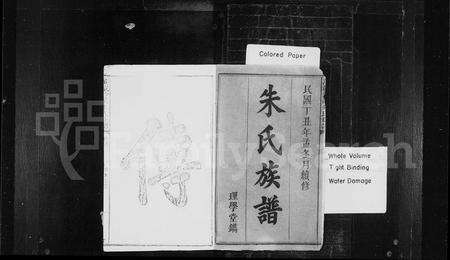 Colored Paper
民國丁丑年孟冬月續修
朱氏族譜
理學堂鐫
傳
Whole Volume
Tight Binding
Water Damage
FamilySearch